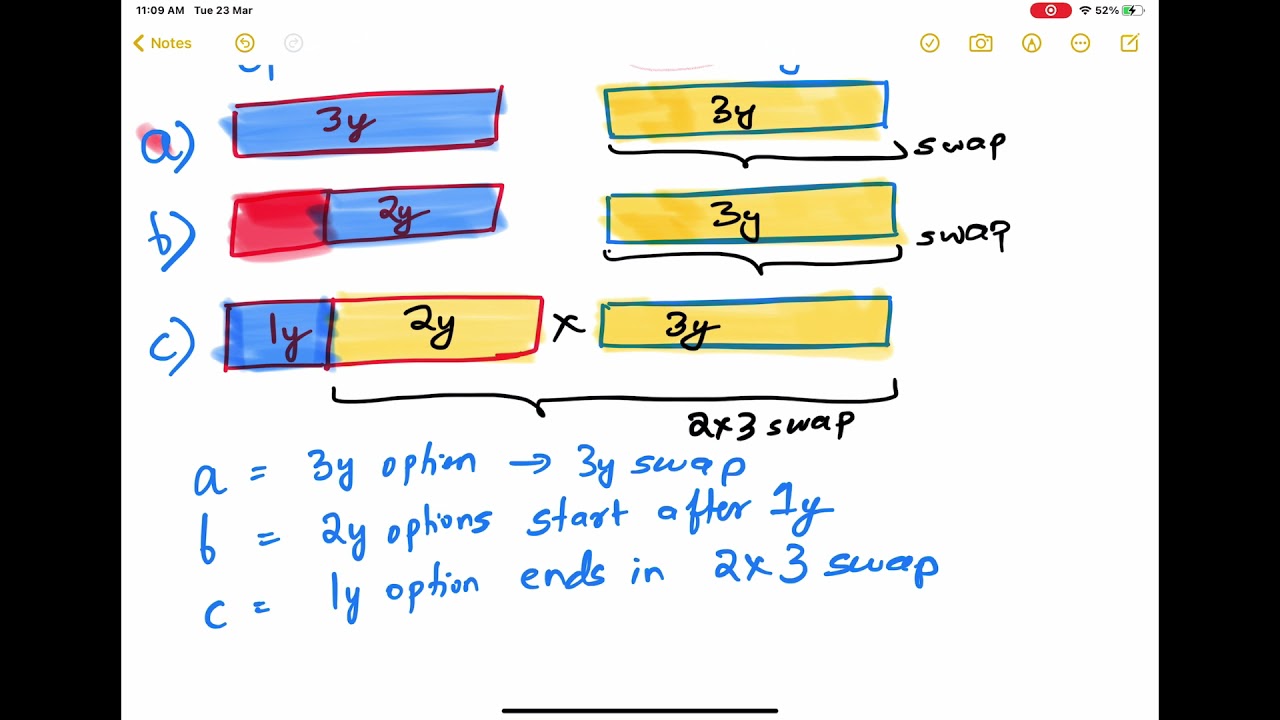 11:09 AM Tue 23 Mar
52%
Notes
a) 3y 3y swap
b) 2y 3y swap
c) 1y 2y x 3y
2x3 swap
a = 3y option → 3y swap
b = 2y options start after 1y
c = 1y option ends in 2x3 swap